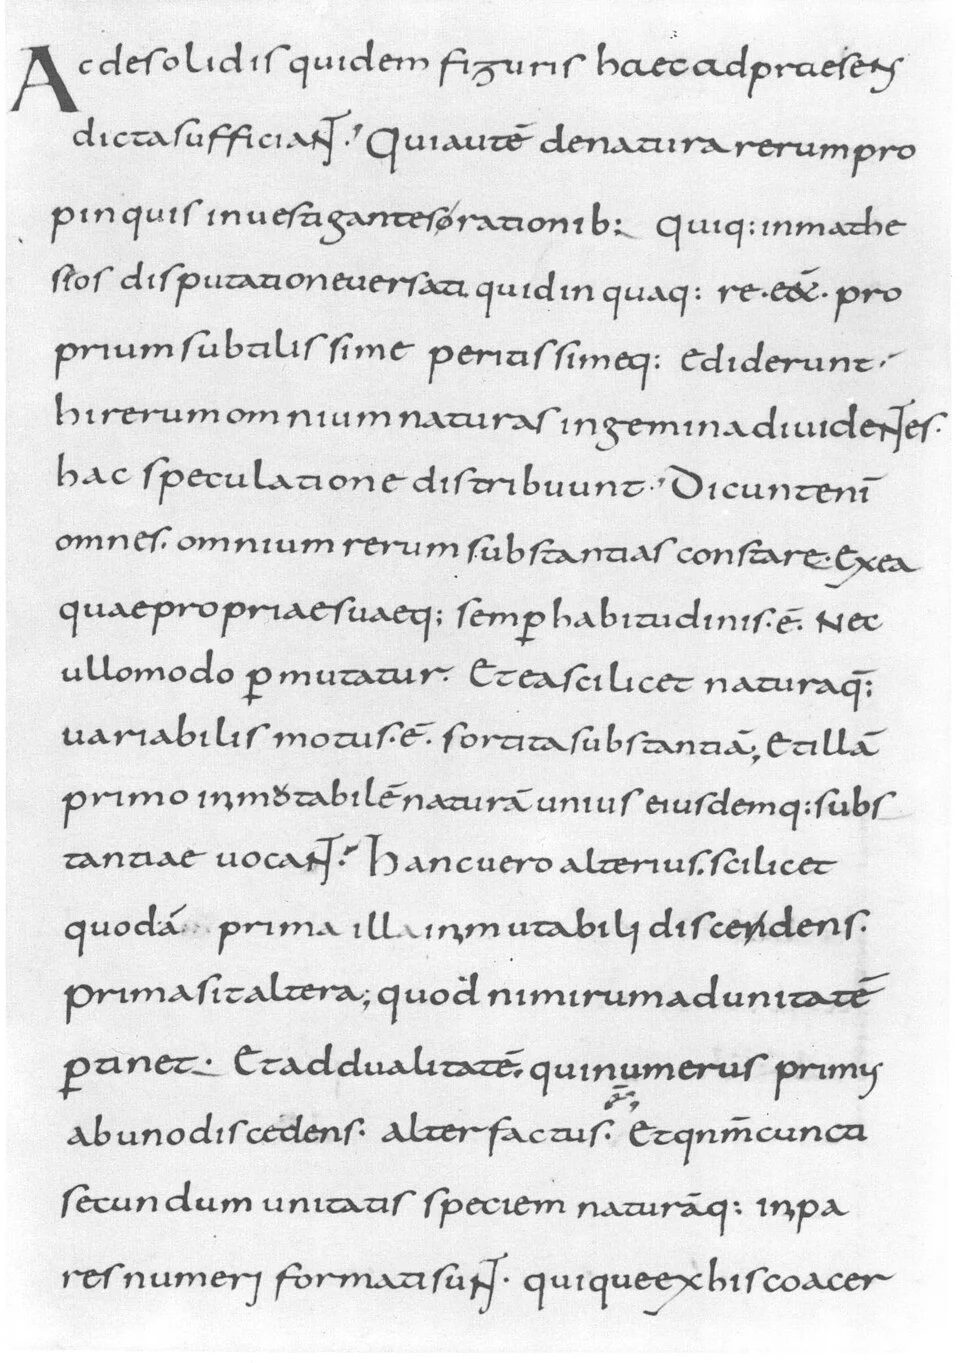 Ac de solidis quidem figuris haec ad praesens
dicta sufficiant. Qui autē de natura rerum pro
pinquis inuestigantes rationib; Quiq: in mathe
seos disputatione uersati quid in quaq: re. eēt. pro
prium subtilissime peritissimeq: ediderunt.
hi rerum omnium naturas in gemina diuidentes.
hac speculatione distribuunt. Dicunt enī
omnes. omnium rerum substantias constare. Ex ea
quae propriae suaeq; semꝑ habitudinis. ē. Nec
ullo modo ꝑmutatur. Et ea scilicet natura q̄;
uariabilis motus. ē. sortita substantiā; Et illā
primo inmutabilē naturā unius eiusdemq: subs
tantiae uocant. Hanc uero alterius. scilicet
quod ā prima illa inmutabili discendens.
Prima sit altera; quod nimirum ad unitatē
ꝑtinet. Et ad dualitatē. qui numerus primus
ab uno discedens. alter factus. Et qnm̄ cuncti
secundum unitatis speciem naturāq: inpa
res numeri formati sunt. quique ex his coacer